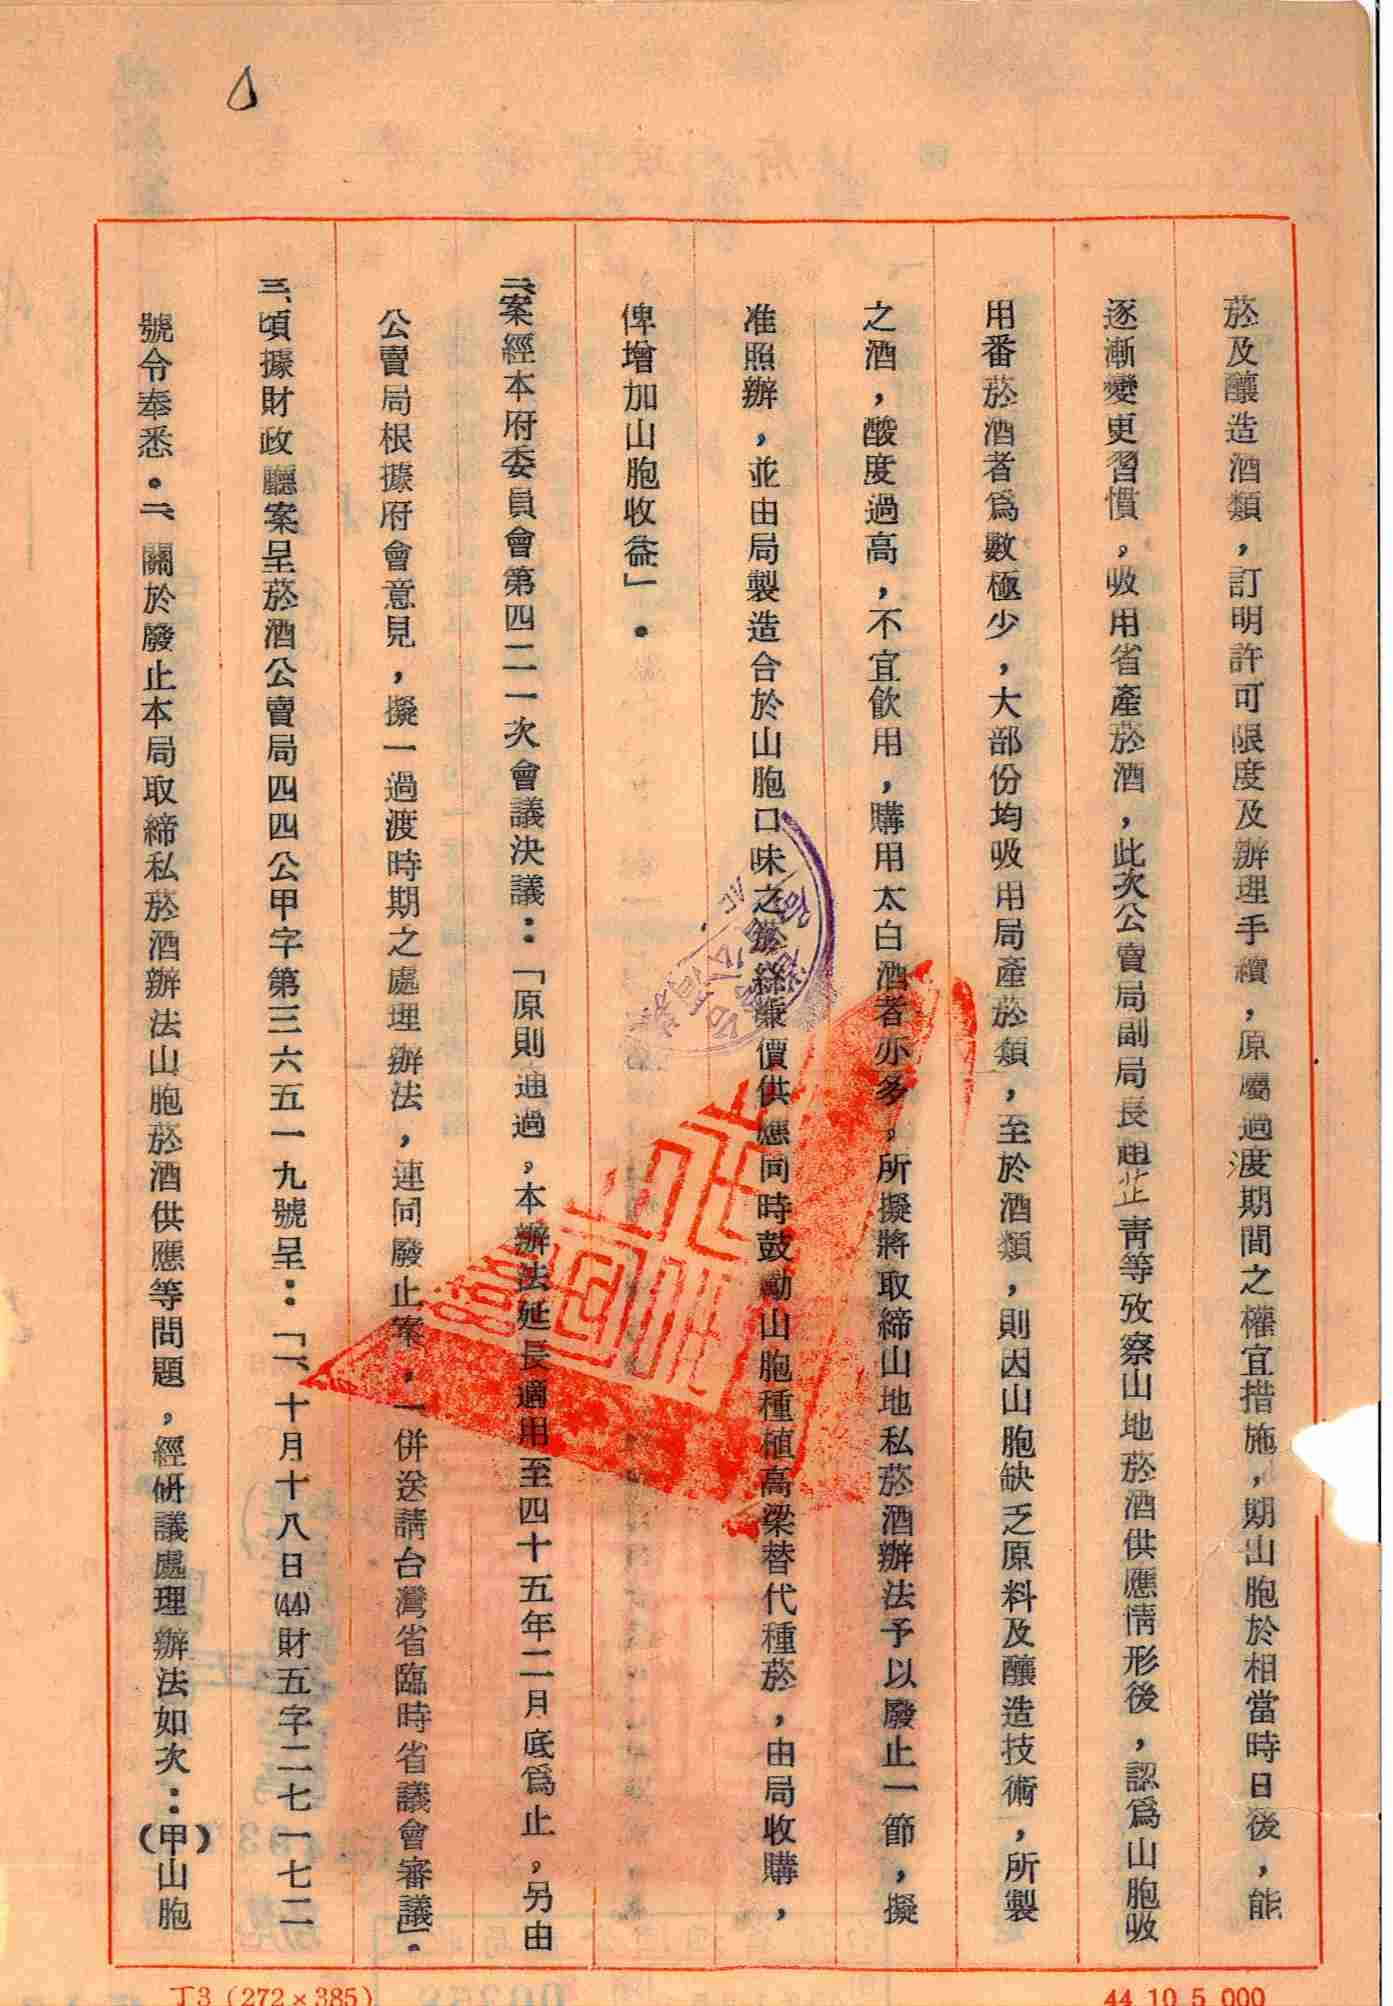 菸及釀造酒類，訂明許可限度及辦理手續，原屬過渡期間之權宜措施，期山胞於相當時日後，能
逐漸變更習慣，吸用省產菸酒，此次公賣局副局長趙芷青等攷察山地菸酒供應情形後，認爲山胞吸
用番菸酒者爲數極少，大部份均吸用局產菸類，至於酒類，則因山胞缺乏原料及釀造技術，所製
之酒，酸度過高，不宜飲用，購用太白酒者亦多，所擬將取締山地私菸酒辦法予以廢止一節，擬
准照辦，並由局製造合於山胞口味之菸絲廉價供應同時鼓勵山胞種植高梁替代種菸，由局收購，
俾增加山胞收益」。
二、案經本府委員會第四二一次會議決議：「原則通過，本辦法延長適用至四十五年二月底爲止，另由
公賣局根據府會意見，擬一過渡時期之處理辦法，連同廢止案，一併送請台灣省臨時省議會審議」。
三、頃據財政廳案呈菸酒公賣局四四公甲字第三六五一九號呈：「一、十月十八日(44)財五字二七一七二
號令奉悉。二、關於廢止本局取締私菸酒辦法山胞菸酒供應等問題，經研議處理辦法如次：（甲）山胞
丁3（272×385）
44 10 5,000